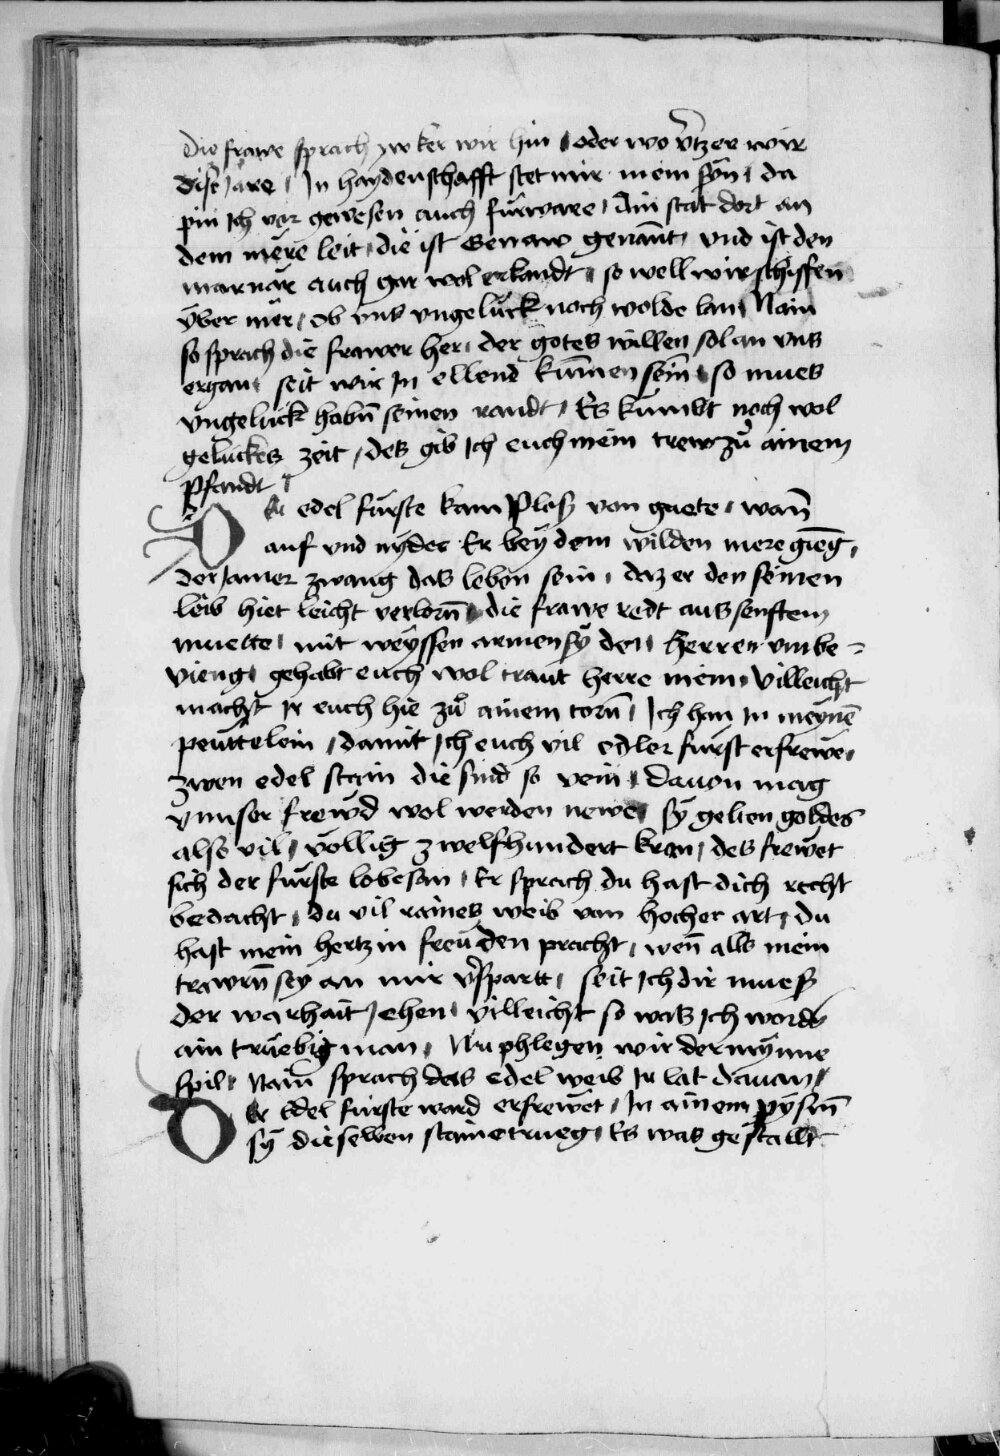 Die frawe sprach zw ker wir hin / oder wo v̈tzer wir
dise Jare / In haydenschafft stet mir mein syn / da
pin Ich vor gewesen auch fürware / Ain stat dort an
dem mere leit / die ist Genaw genannt / vnd ist den
marnar auch gar wol erkandt / so well wir schiffen
v̈ber mer / ob vns vngelück noch wolde lan / Nain
so sprach die frawe her / der gotes willen sol an vns
ergan / seit wir In ellend kumen sein / so mues
vngeluck habn̄ seinen randt / Es kumbt noch wol
geluckes zeit / des gib Ich euch mein trew zu ainem
Pfandt
Der edel fürste kam Plosz von guete / wan̄
auf vnd nyder Er bey dem wilden mere gieng /
der Jamer zwang das leben sein / daz er den seinen
leib hiet leicht verlorn̄ / die frawe redt aus senftem
muette / mit weyssen armen sy den / Herren vmbe =
vieng / gehabt euch wol traut herre mein / Villeicht
machst Ir euch hie zu ainem torn̄ / Ich han In meynē
peüttelein / damit Ich euch vil edler fürst erfrewe /
zwen edel stain die sind so vein / dauon mag
vnnser frewd wol werden newe / sy gelten goldes
also vil / vollig zwelfhundert kran / des frewet
sich der fürste lobesan / Er sprach du hast dich recht
bedacht / du vil raines weib von hocher art / du
hast mein hertz in freüden pracht / wen̄ alls mein
trawrn̄ sey an mir v̈spartt / seit Ich dir muesz
der warhait Jehen / villeicht so was Ich worden
ain trüebig man / Nu phlegen wir der mynne
spil / Nain sprach das edel weib Ir lat dauan /
Der Edel fürste ward erfrewet / In ainem pysm̄
sy die selben staine trueg / Es was gestallt